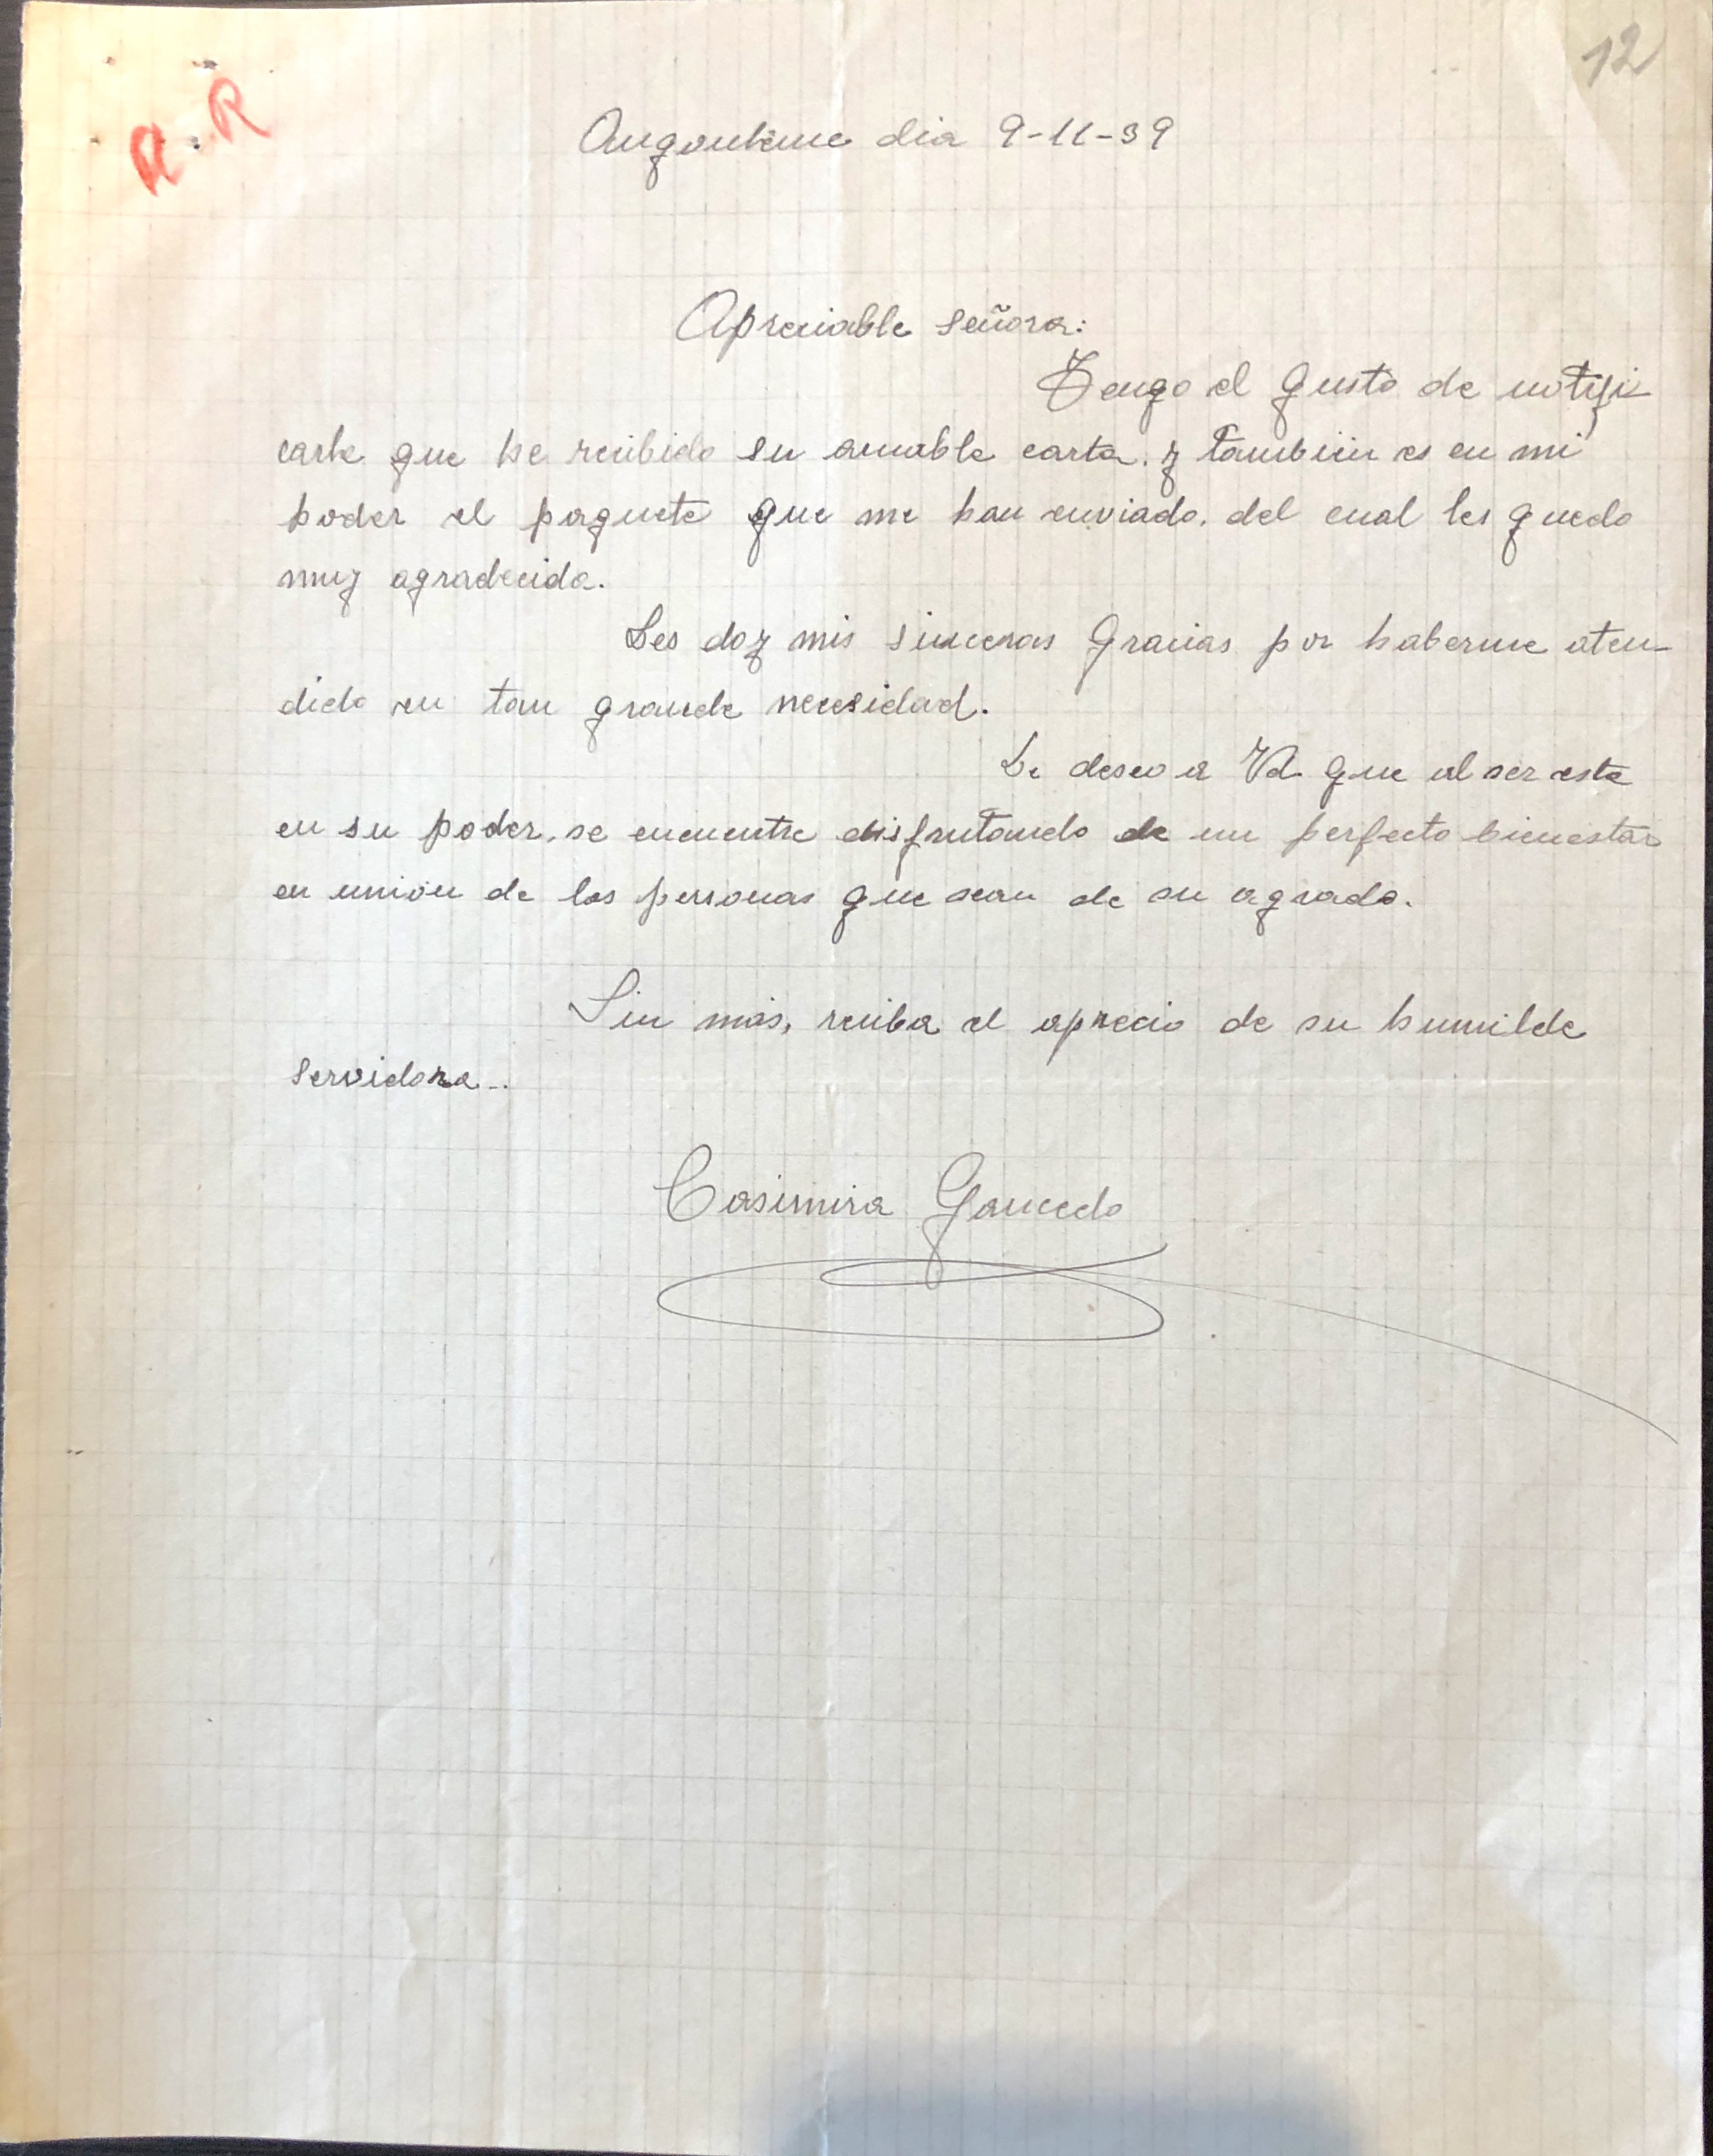 12
R.R
Angouleme dia 9-11-39
Apreciable señora:
Tengo el gusto de notifi
carle que he recibido su amable carta. y tambien es en mi
poder el paquete que me han enviado. del cual les quedo
muy agradecida.
Les doy mis sinceras gracias por haberme aten-
dido en tan grande necesidad.
Le deseo a Vd. que al ser esta
en su poder, se encuentre disfrutando de un perfecto bienestar
en unión de las personas que sean de su agrado.
Sin más, reciba el aprecio de su humilde
servidora..
Casimira Gancedo